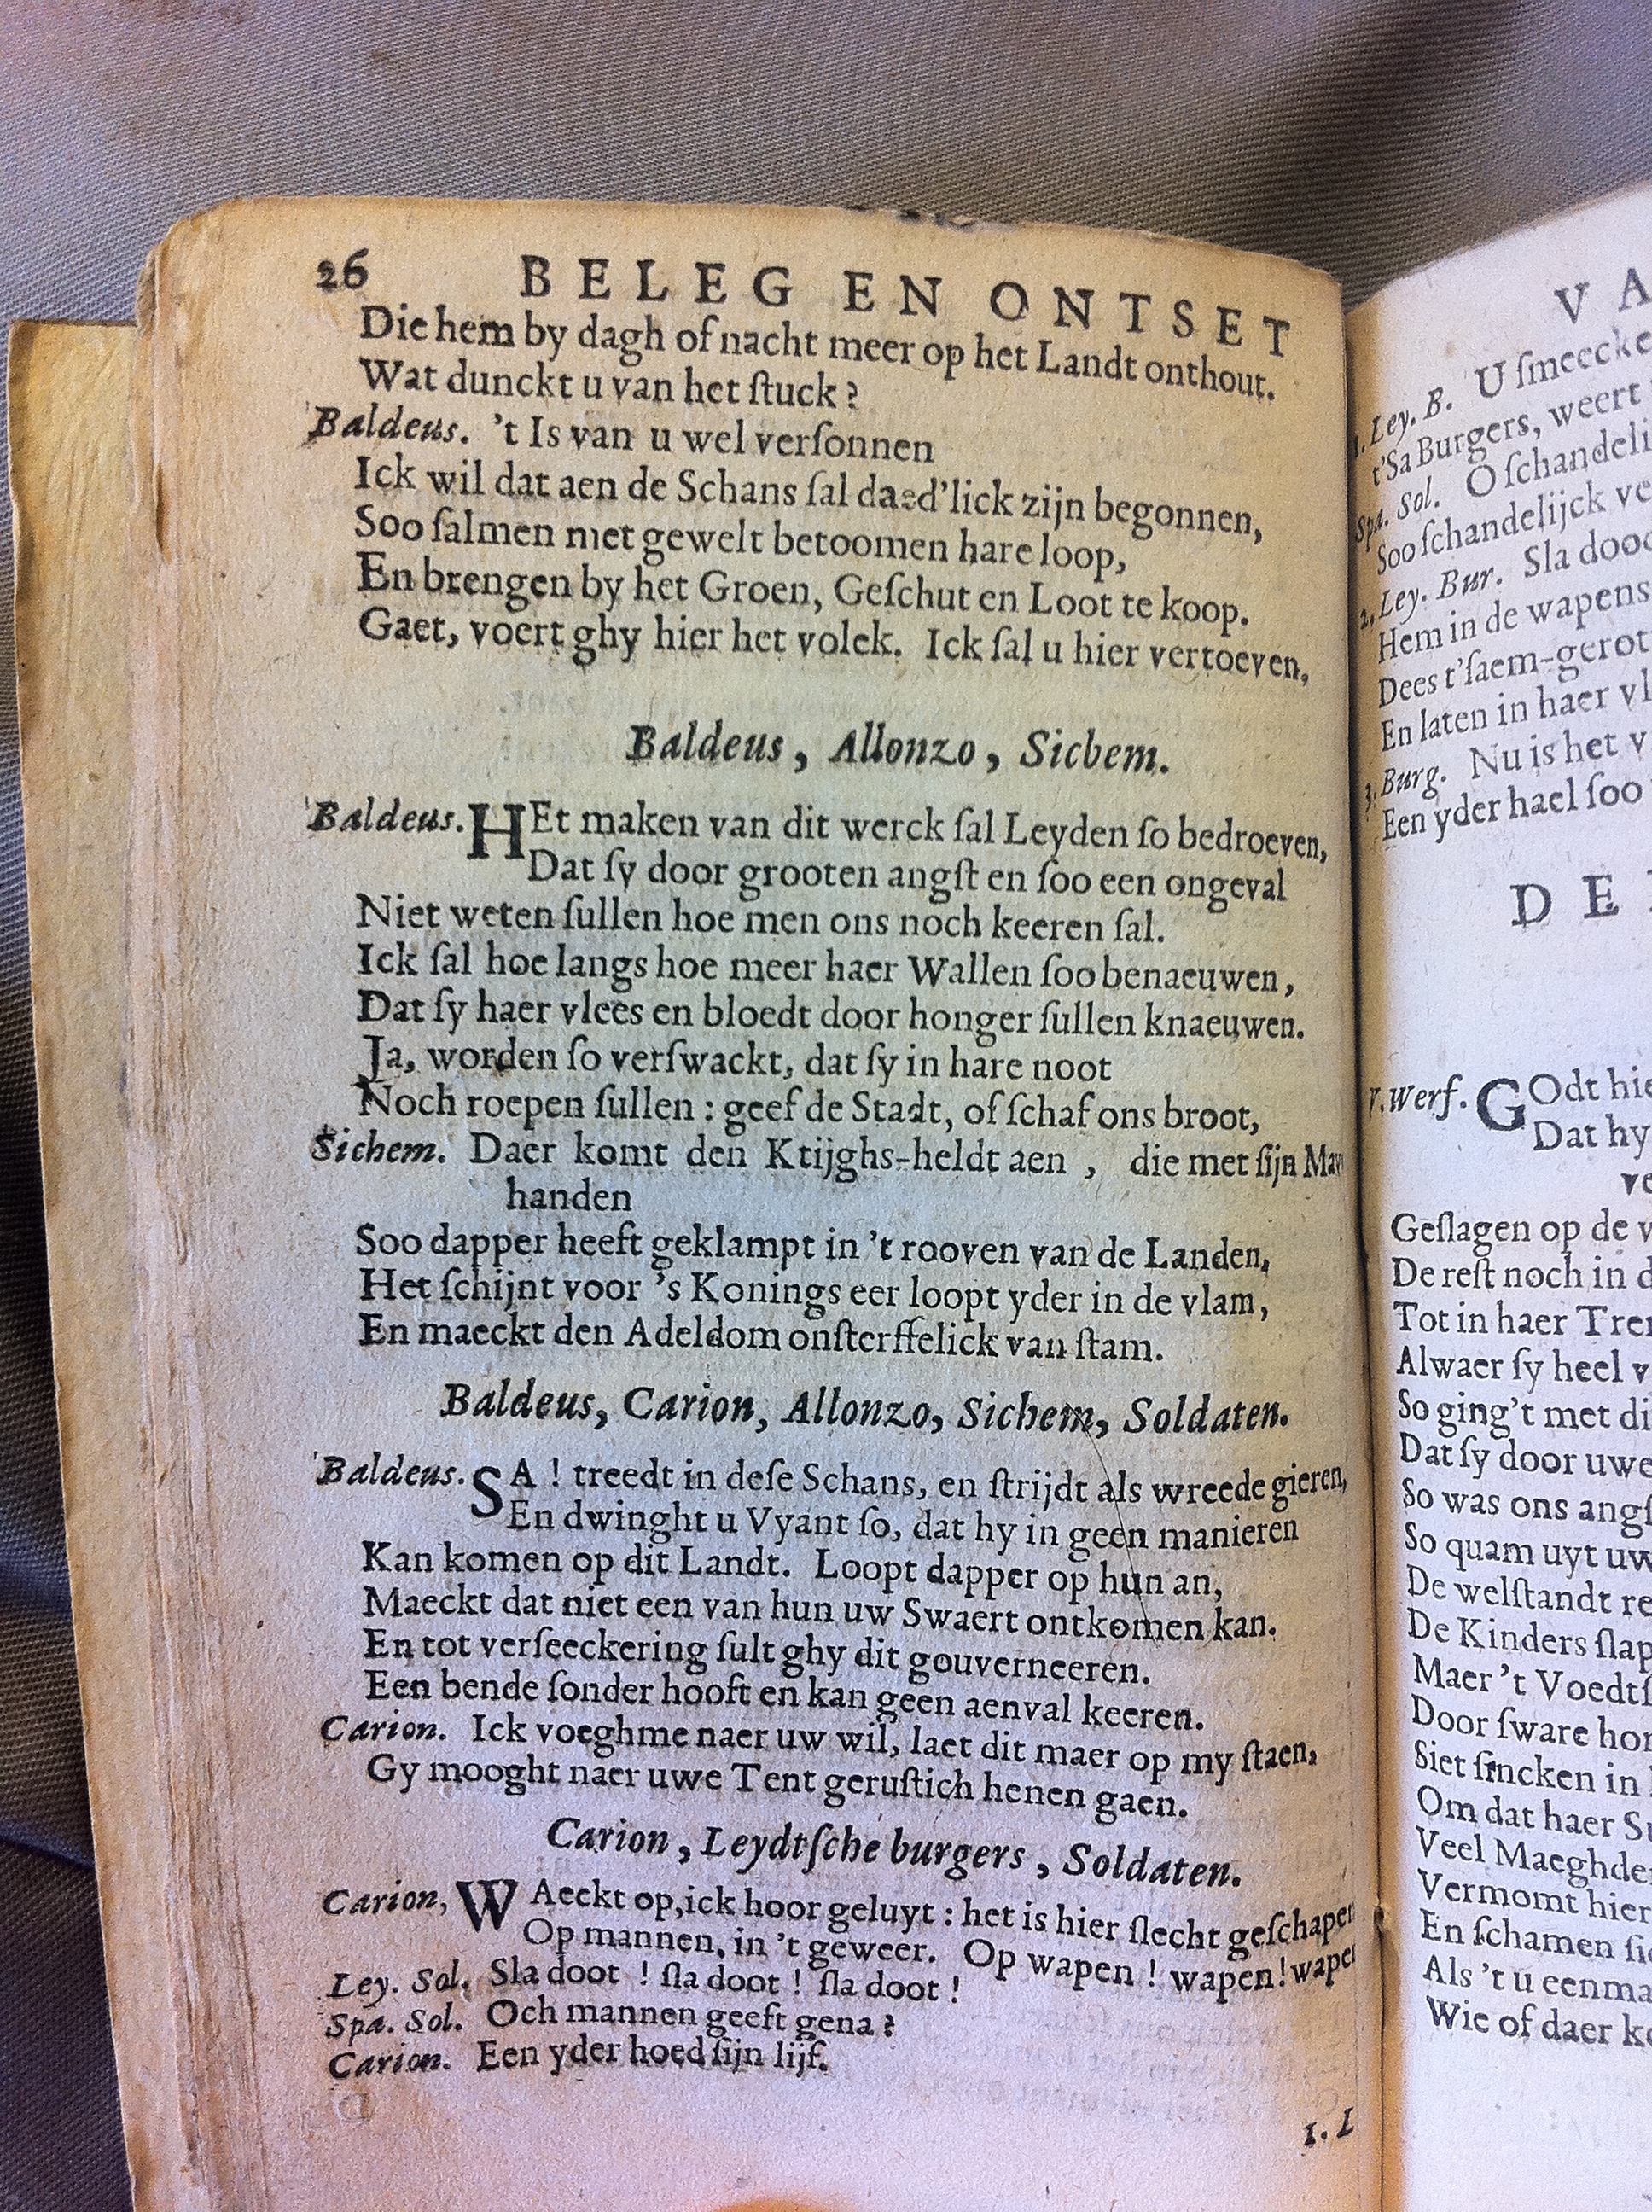 26 BELEG EN ONTSET
Die hem by dagh of nacht meer op het Landt onthout.
Wat dunckt u van het ſtuck?
Baldeus. 't Is van u wel verſonnen
Ick wil dat aen de Schans ſal daed'lick zijn begonnen,
Soo ſalmen met gewelt betoomen hare loop,
En brengen by het Groen, Geſchut en Loot te koop.
Gaet, voert ghy hier het volck. Ick ſal u hier vertoeven,
Baldeus, Allonzo, Sichem.
Baldeus. HEt maken van dit werck ſal Leyden ſo bedroeven,
Dat ſy door grooten angſt en ſoo een ongeval
Niet weten ſullen hoe men ons noch keeren ſal.
Ick ſal hoe langs hoe meer haer Wallen ſoo benaeuwen,
Dat ſy haer vlees en bloedt door honger ſullen knaeuwen.
Ja, worden ſo verſwackt, dat ſy in hare noot
Noch roepen ſullen: geef de Stadt, of ſchaf ons broot,
Sichem. Daer komt den Ktijghs-heldt aen, die met ſijn
handen
Soo dapper heeft geklampt in 't rooven van de Landen,
Het ſchijnt voor 's Konings eer loopt yder in de vlam,
En maeckt den Adeldom onſterffelick van ſtam.
Baldeus, Carion, Allonzo, Sichem, Soldaten.
Baldeus. SA! treedt in deſe Schans, en ſtrijdt als wreede gieren,
En dwinght u Vyant ſo, dat hy in geen manieren
Kan komen op dit Landt. Loopt dapper op hun an,
Maeckt dat niet een van hun uw Swaert ontkomen kan.
En tot verſeeckering ſult ghy dit gouverneeren.
Een bende ſonder hooft en kan geen aenval keeren.
Carion. Ick voeghme naer uw wil, laet dit maer op my ſtaen,
Gy mooght naer uwe Tent geruſtich henen gaen.
Carion, Leydtſche burgers, Soldaten.
Carion, WAeckt op, ick hoor geluyt: het is hier ſlecht geſchapen
Op mannen, in 't geweer. Op wapen! wapen! wapen
Ley. Sol. Sla doot! ſla doot! ſla doot!
Spa. Sol. Och mannen geeft gena?
Carion. Een yder hoed ſijn lijf.
1. L
V A
1. Ley. B. U ſmeecke
t'Sa Burgers, weert
Spa. Sol. O ſchandeli
Soo ſchandelijck ve
2. Ley. Bur. Sla dood
Hem in de wapens
Dees t'ſaem-gerot
En laten in haer vl
3. Burg. Nu is het v
Een yder hael ſoo
D E
V. Werf. GOdt hie
Dat hy
ve
Geſlagen op de v
De reſt noch in d
Tot in haer Tren
Alwaer ſy heel v
So ging't met di
Dat ſy door uwe
So was ons angſ
So quam uyt uw
De welſtandt re
De Kinders ſlap
Maer 't Voedtſ
Door ſware hon
Siet ſincken in
Om dat haer Su
Veel Maeghde
Vermomt hier
En ſchamen ſic
Als 't u eenma
Wie of daer ko